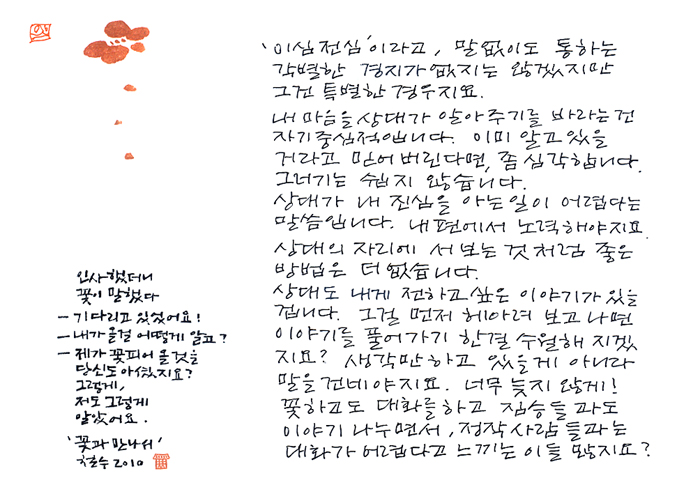 '이심전심'이라고, 말없이도 통하는
각별한 경지가 없지는 않겠지만
그건 특별한 경우지요.
내 마음을 상대가 알아주기를 바라는건
자기중심적입니다. 이미 알고 있을
거라고 믿어버린다면, 좀 심각합니다.
그러기는 쉽지 않습니다.
상대가 내 진심을 아는일이 어렵다는
말씀입니다. 내 편에서 노력해야지요.
상대의 자리에 서 보는 것처럼 좋은
방법은 더 없습니다.
상대도 내게 전하고 싶은 이야기가 있을
겁니다. 그걸 먼저 헤아려 보고 나면
이야기를 풀어가기 한결 수월해 지겠
지요? 생각만 하고 있을게 아니라
말을 건네야지요. 너무 늦지 않게!
꽃하고도 대화를 하고 짐승들과도
이야기 나누면서, 정작 사람들과는
대화가 어렵다고 느끼는 이들 많지요?
인사했더니
꽃이 말했다
- 기다리고 있었어요!
- 내가 올걸 어떻게 알고?
- 제가 꽃피어 올 것을
당신도 아셨지요?
그렇게,
저도 그렇게
알았어요.
'꽃과 만나서'
철수 2010